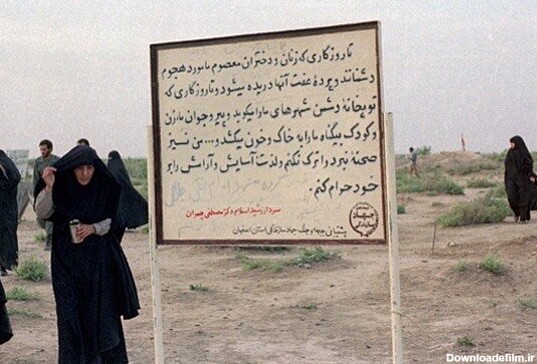 تا روزگاری که زنان و دختران معصوم ما مورد هجوم
دشمنانند و پردهٔ عفت آنها دریده میشود و تا روزگاری که
توپخانهٔ دشمن شهرهای ما را میکوبد و پیر و جوان ما، زن
و کودک بیگناه ما را به خاک و خون میکشد و... من نیز
صحنهٔ نبرد را ترک نکنم و لذت آسایش و آرامش را بر
خود حرام کنم.
سردار رشید اسلام دکتر مصطفی چمران
پشتیبانی جبهه و جنگ - جهاد سازندگی استان اصفهان
جهاد
سازندگی
Downloadefilm.ir